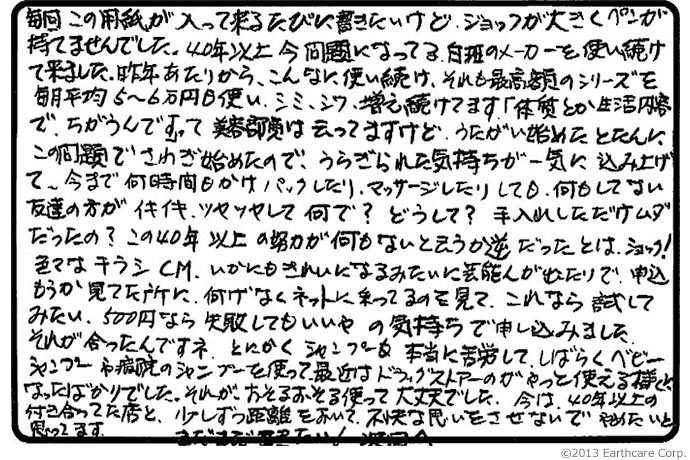 毎回この用紙が入って来るたびに書きたいけど、ショックが大きくペンが
持てませんでした。40年以上今問題になってる白斑のメーカーを使い続け
て来ました。昨年あたりから、こんなに使い続け、それも最高額のシリーズを
毎月平均5〜6万円も使い、シミ、シワ、増え続けてます「体質とか生活内容
で、ちがうんですって美容部員は云ってますけど、うたがい始めたとたんに
この問題でさわぎ始めたので、うらぎられた気持ちが一気に込み上げ
て、今まで何時間もかけパックしたり、マッサージしたりしても、何もしてない
友達の方がイキイキ、ツヤツヤして何で？どうして？手入れしただけムダ
だったの？この40年以上の努力が何もないと云うか逆だったとは、ショック！
色々なチラシCM、いかにもきれいになるみたいに芸能人が出たりで、申込
もうか見てた所に、何げなくネットに乗ってるのを見て、これなら試して
みたい、500円なら失敗してもいいやの気持ちで申し込みました
それが合ったんですネ、とにかくシャンプーも本当に苦労して、しばらくベビー
シャンプーや病院のシャンプーを使って最近はドラッグストアーのがやっと使える様に
なったばかりでした。それが、おそるおそる使って大丈夫でした。今は、40年以上の
付き合ってた店と、少しずつ距離をおいて、不快な思いをさせないでやめたいと
思ってます。 まだまだ書きたい！次回へ
©2013 Earthcare Corp.